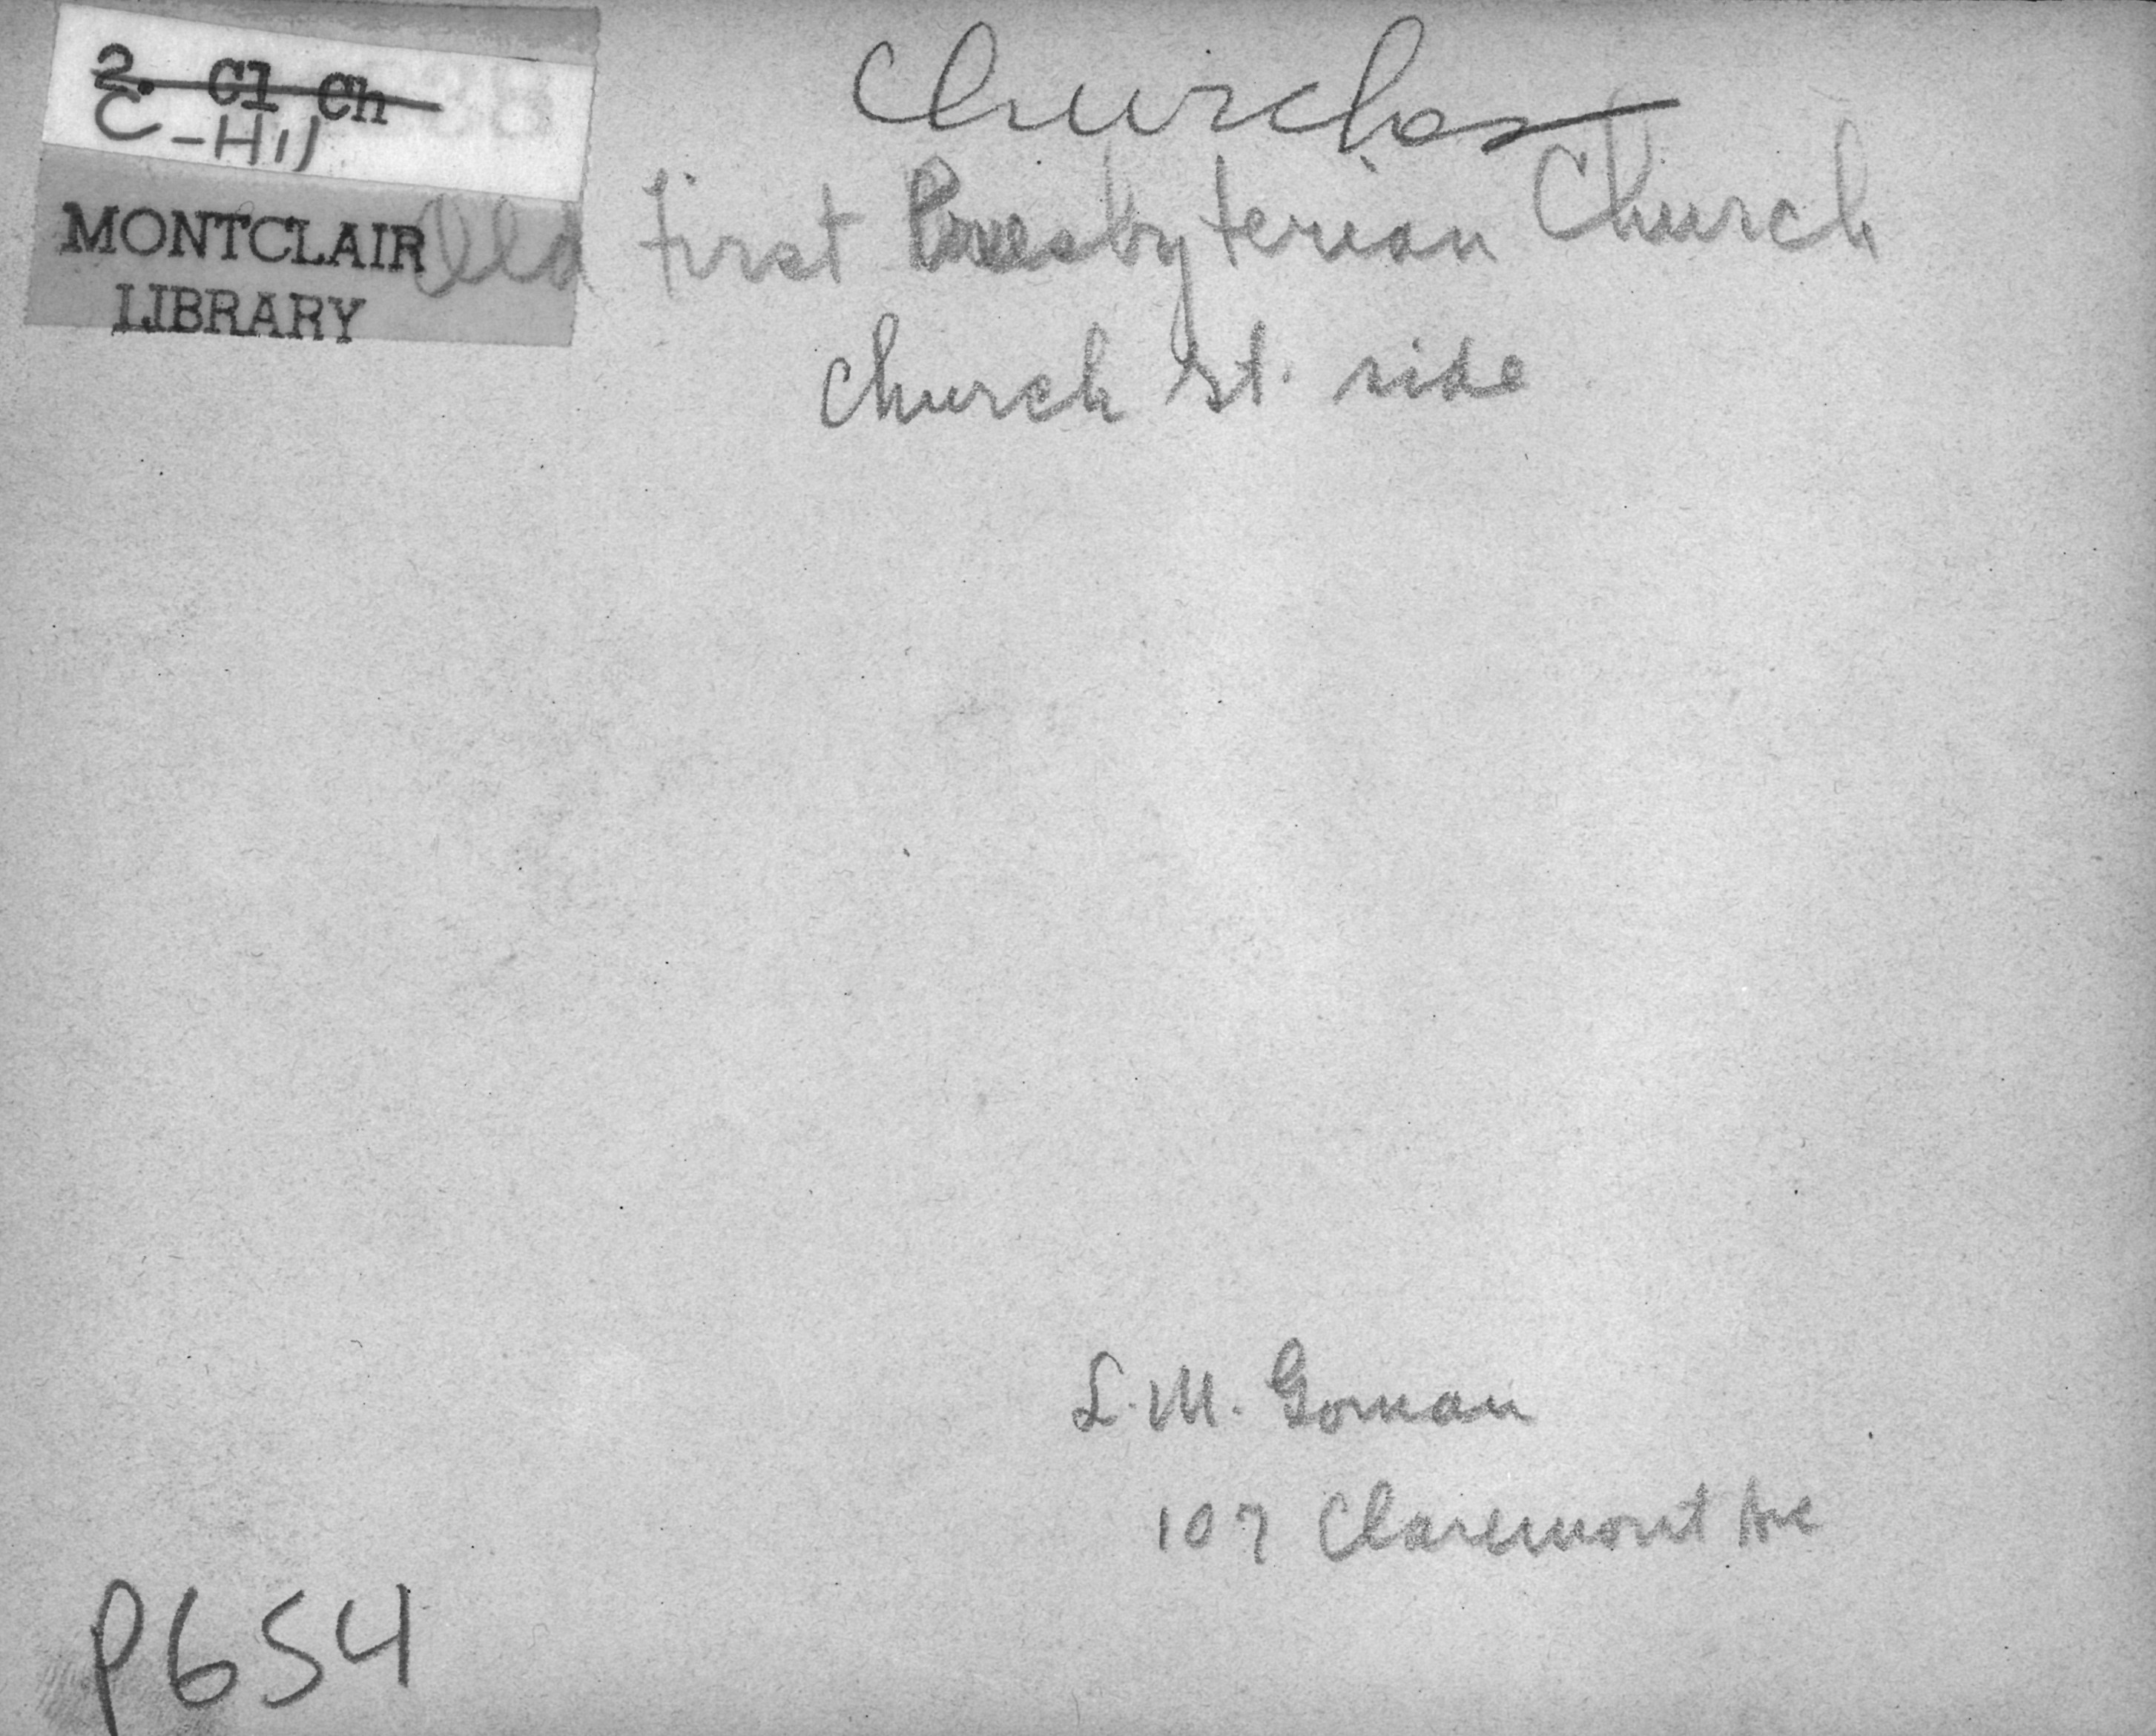 2. Cl Ch
C-Hil
MONTCLAIR
LIBRARY
Churches
Old First Presbyterian Church
Church St. side
L. M. Goman
107 Claremont Ave
P654